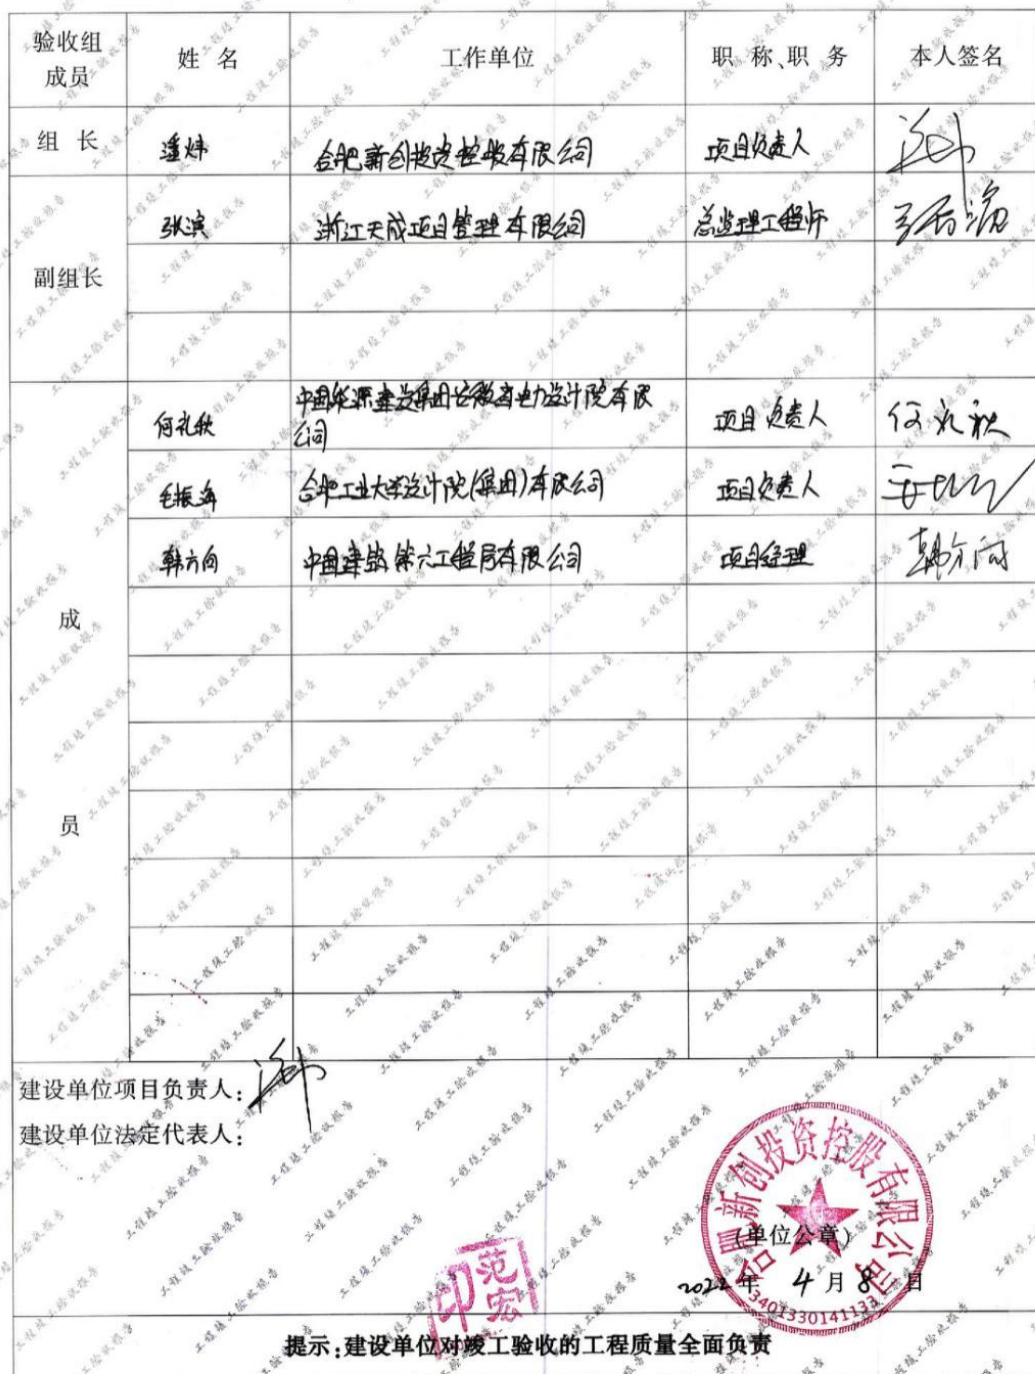 验收组成员 姓 名 工作单位 职 称、职 务 本人签名
组 长 潘炜 合肥新创投资控股有限公司 项目负责人
副组长 张滨 浙江天成项目管理有限公司 总监理工程师 张滨
成员 何礼秋 中国能源建设集团安徽省电力设计院有限公司 项目负责人 何礼秋
毛振海 合肥工业大学设计院(集团)有限公司 项目负责人
韩方向 中国建筑第六工程局有限公司 项目经理 韩方向
建设单位项目负责人:
建设单位法定代表人:
合肥新创投资控股有限公司
(单位公章)
2022年 4月8日
3401330141133
范宏印
提示:建设单位对竣工验收的工程质量全面负责
工程竣工验收报告